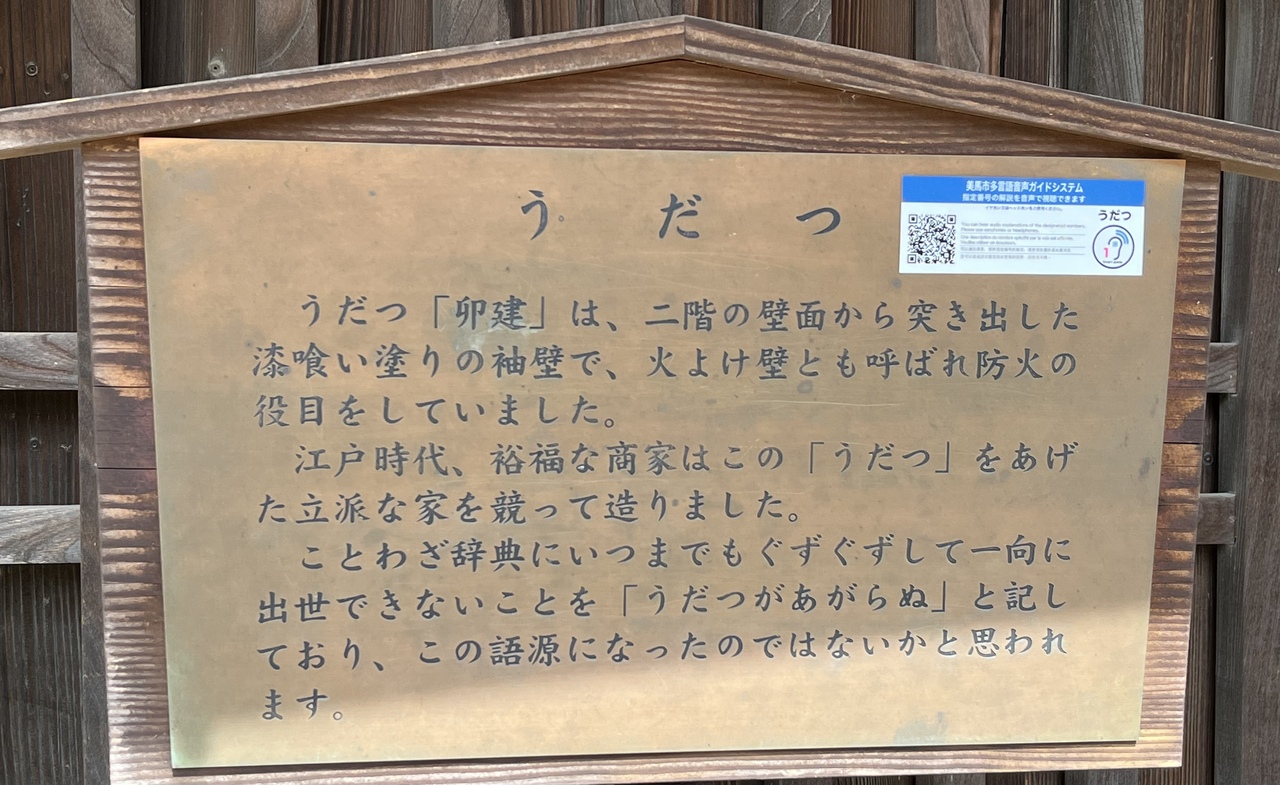 うだつ
美馬市多言語音声ガイドシステム
指定番号の解説を音声で視聴できます
うだつ
You can hear audio explanations of the designated numbers.
Please use earphones or headphones.
1
うだつ「卯建」は、二階の壁面から突き出した
漆喰い塗りの袖壁で、火よけ壁とも呼ばれ防火の
役目をしていました。
江戸時代、裕福な商家はこの「うだつ」をあげ
た立派な家を競って造りました。
ことわざ辞典にいつまでもぐずぐずして一向に
出世できないことを「うだつがあがらぬ」と記し
ており、この語源になったのではないかと思われ
ます。